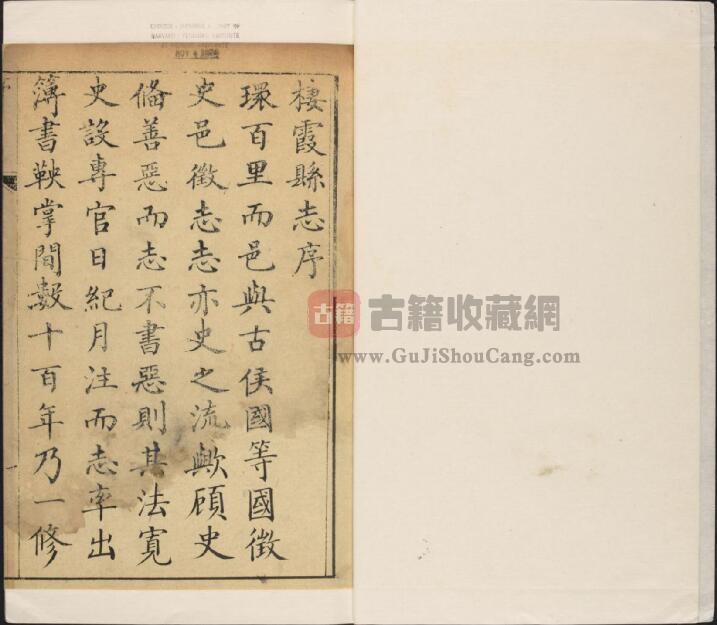 棲霞縣志序
環百里而邑與古侯國等國徵
史邑徵志志亦史之流歟顧史
俻善惡而志不書惡則其法寬
史設專官日紀月注而志率出
簿書鞅掌間數十百年乃一修
古籍
古籍收藏網
www.GuJiShouCang.com